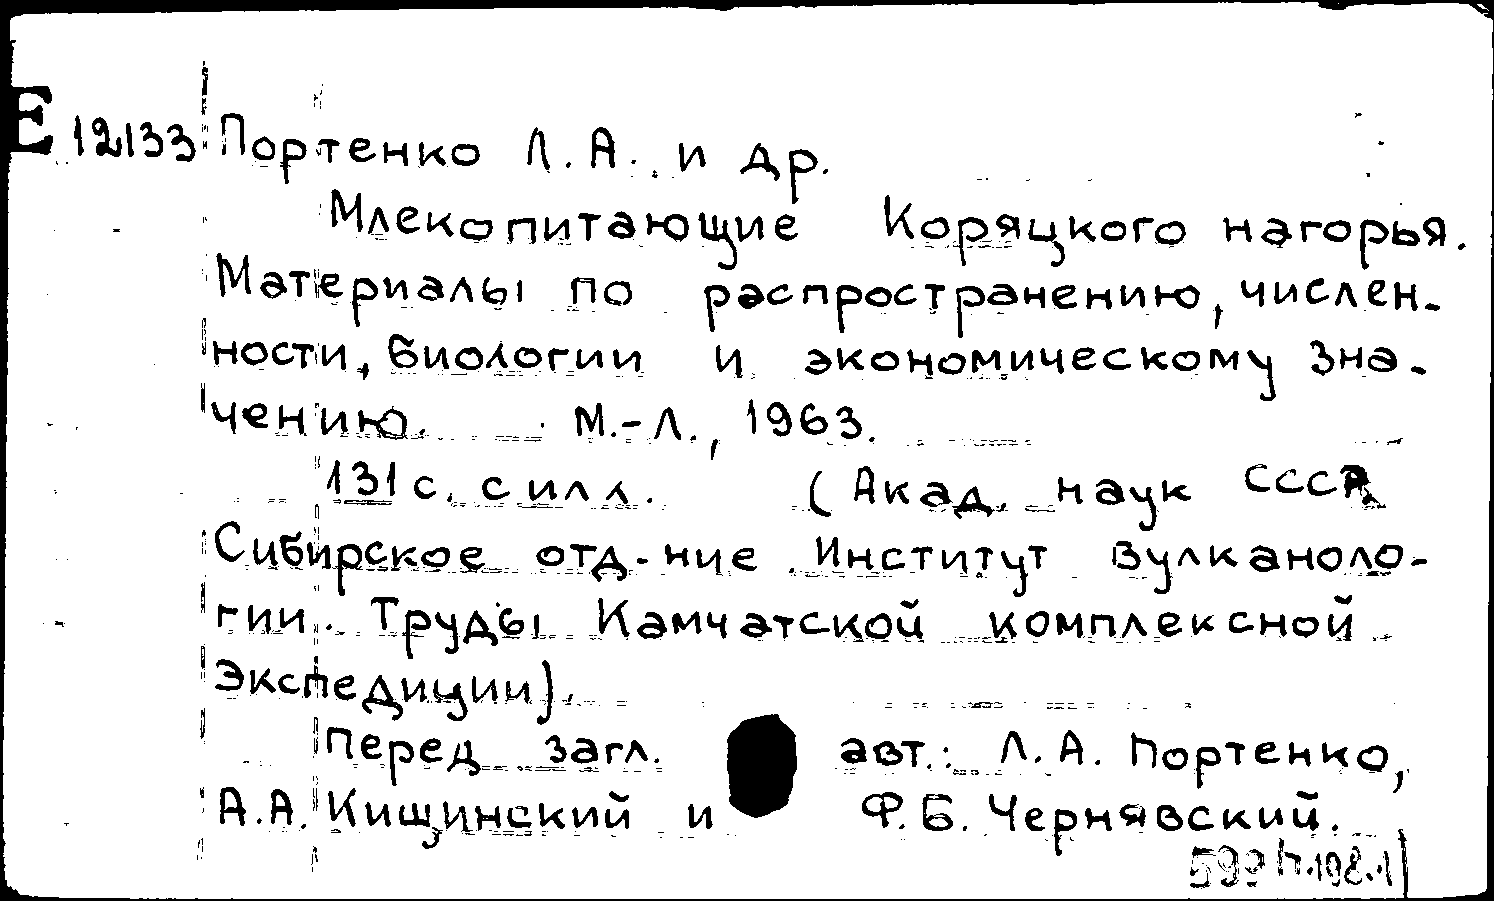 Е 12133 Портенко Л.А. и др.
Млекопитающие Коряцкого нагорья.
Материалы по распространению, числен-
ности, биологии и экономическому зна-
чению. М.-Л., 1963.
131 с. с илл. (Акад. наук СССР
Сибирское отд-ние. Институт вулканоло-
гии. Труды Камчатской комплексной
Экспедиции).
Перед загл. авт.: Л.А. Портенко,
А.А. Кищинский и Ф.Б. Чернявский.